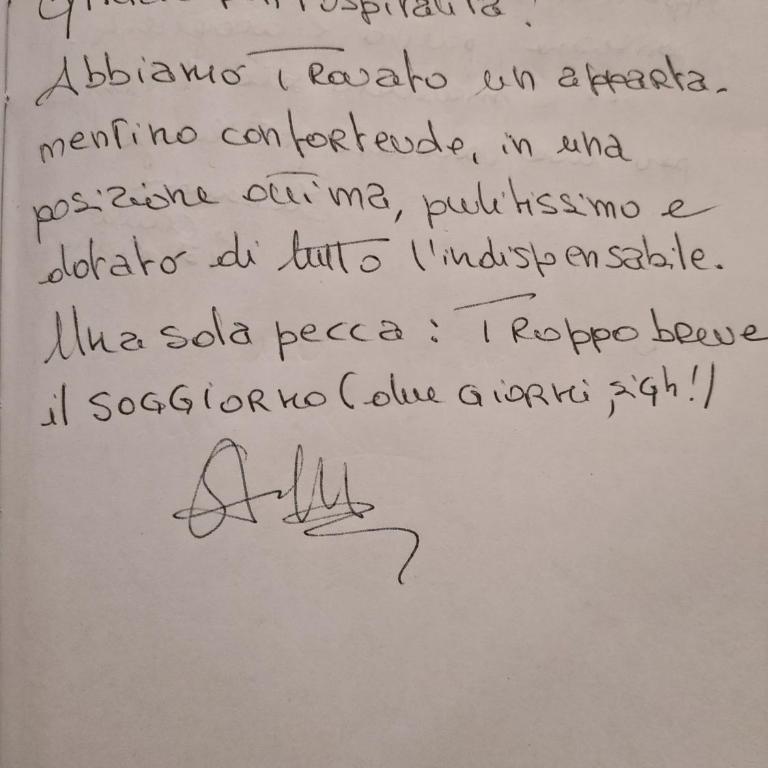 Grazie per l'ospitalità!
Abbiamo Trovato un apparta-
mentino confortevole, in una
posizione ottima, pulitissimo e
dotato di tutto l'indispensabile.
Una sola pecca: Troppo breve
il SOGGIORNO (due GIORNI, sigh!)